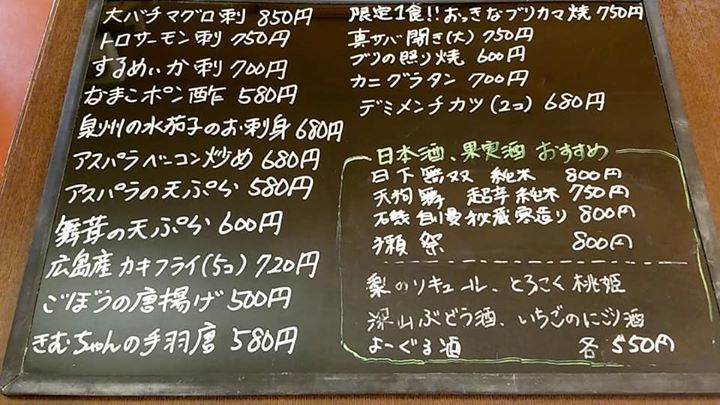 大バチマグロ刺 850円
トロサーモン刺 750円
するめいか刺 700円
なまこポン酢 580円
泉州の水茄子のお刺身 680円
アスパラベーコン炒め 680円
アスパラの天ぷら 580円
舞茸の天ぷら 600円
広島産カキフライ(5コ) 720円
ごぼうの唐揚げ 500円
きむちゃんの手羽唐 580円
限定1食!!おっきなブリカマ焼 750円
真サバ開き(大) 750円
ブリの照り焼 600円
カニグラタン 700円
デミメンチカツ(2コ) 680円
日本酒、果実酒 おすすめ
日下無双 純米 800円
天狗舞 超辛純米 750円
石鎚 自慢秘蔵寒造り 800円
獺祭 800円
梨のリキュール、とろこく桃姫
深山ぶどう酒、いちごのにごり酒
よーぐる酒 各550円